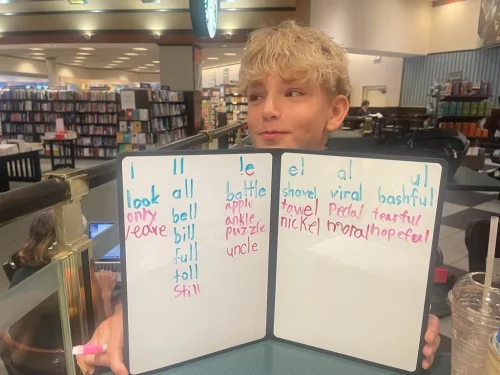 l ll le el al ul
look all battle shovel viral bashful
only bell apple towel pedal tearful
leave bill ankle nickel moral hopeful
full puzzle
toll uncle
still